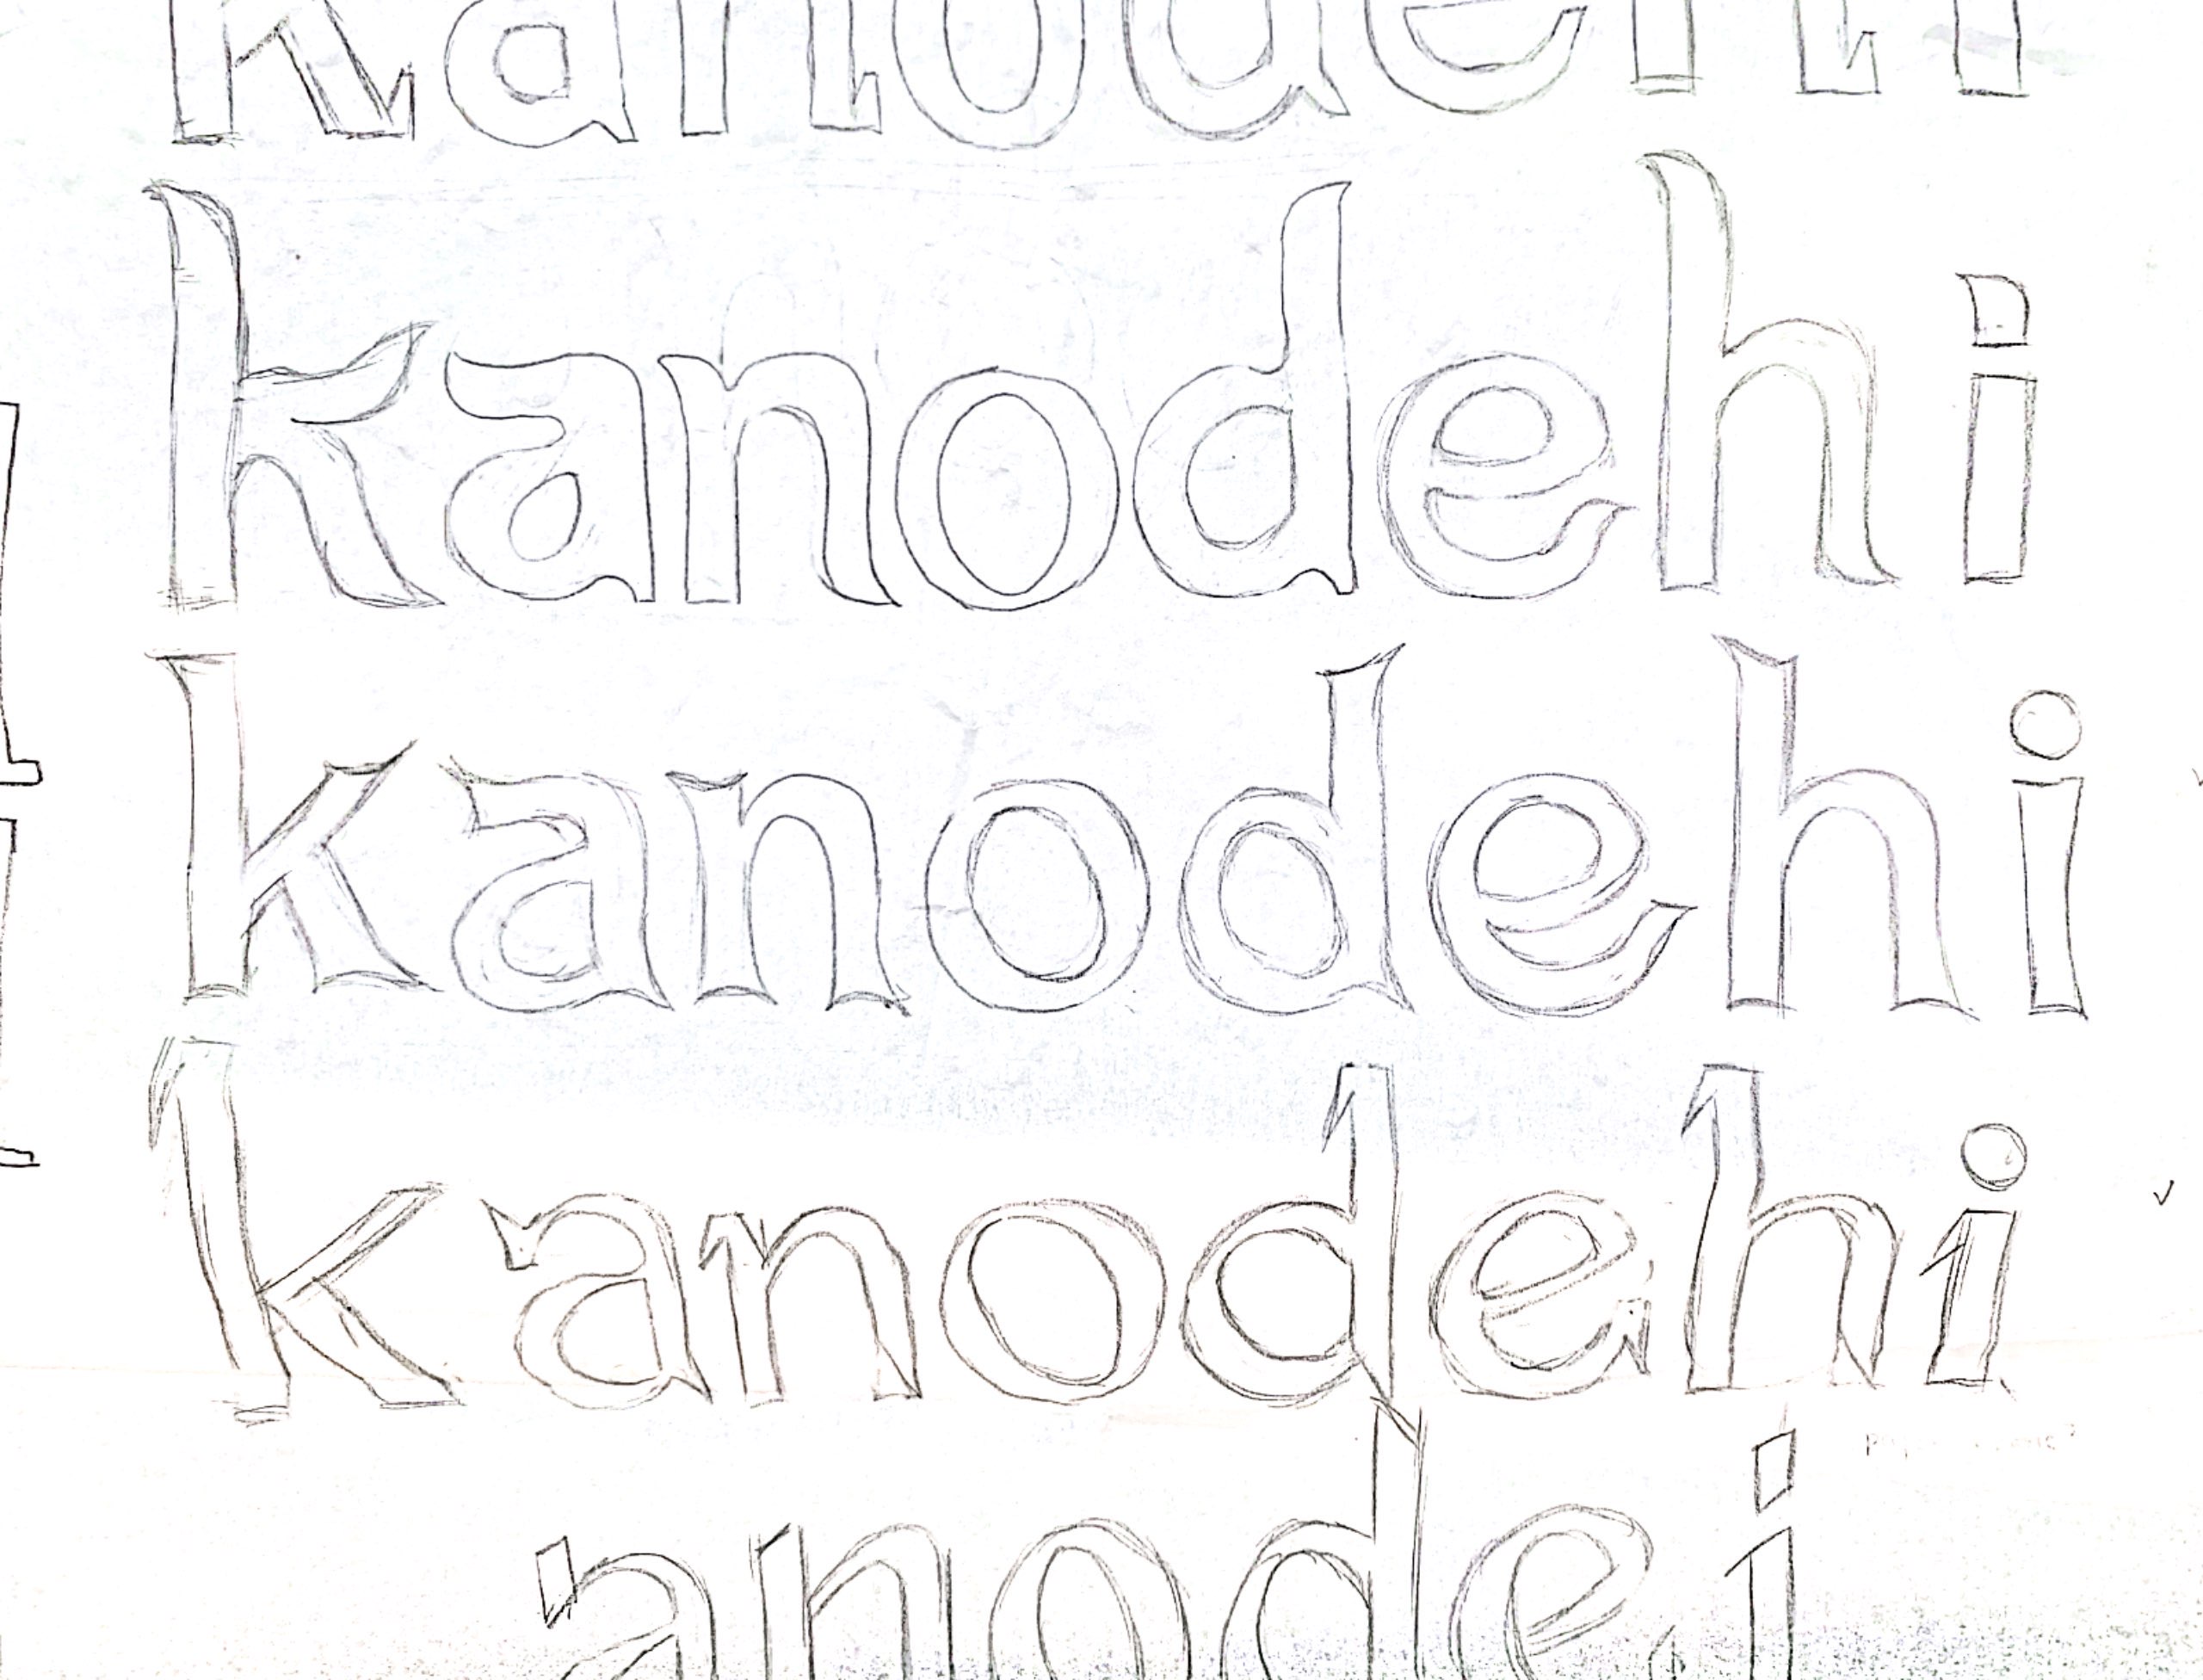 kanodehi
kanodehi
kanodehi
kanodehi
anodei